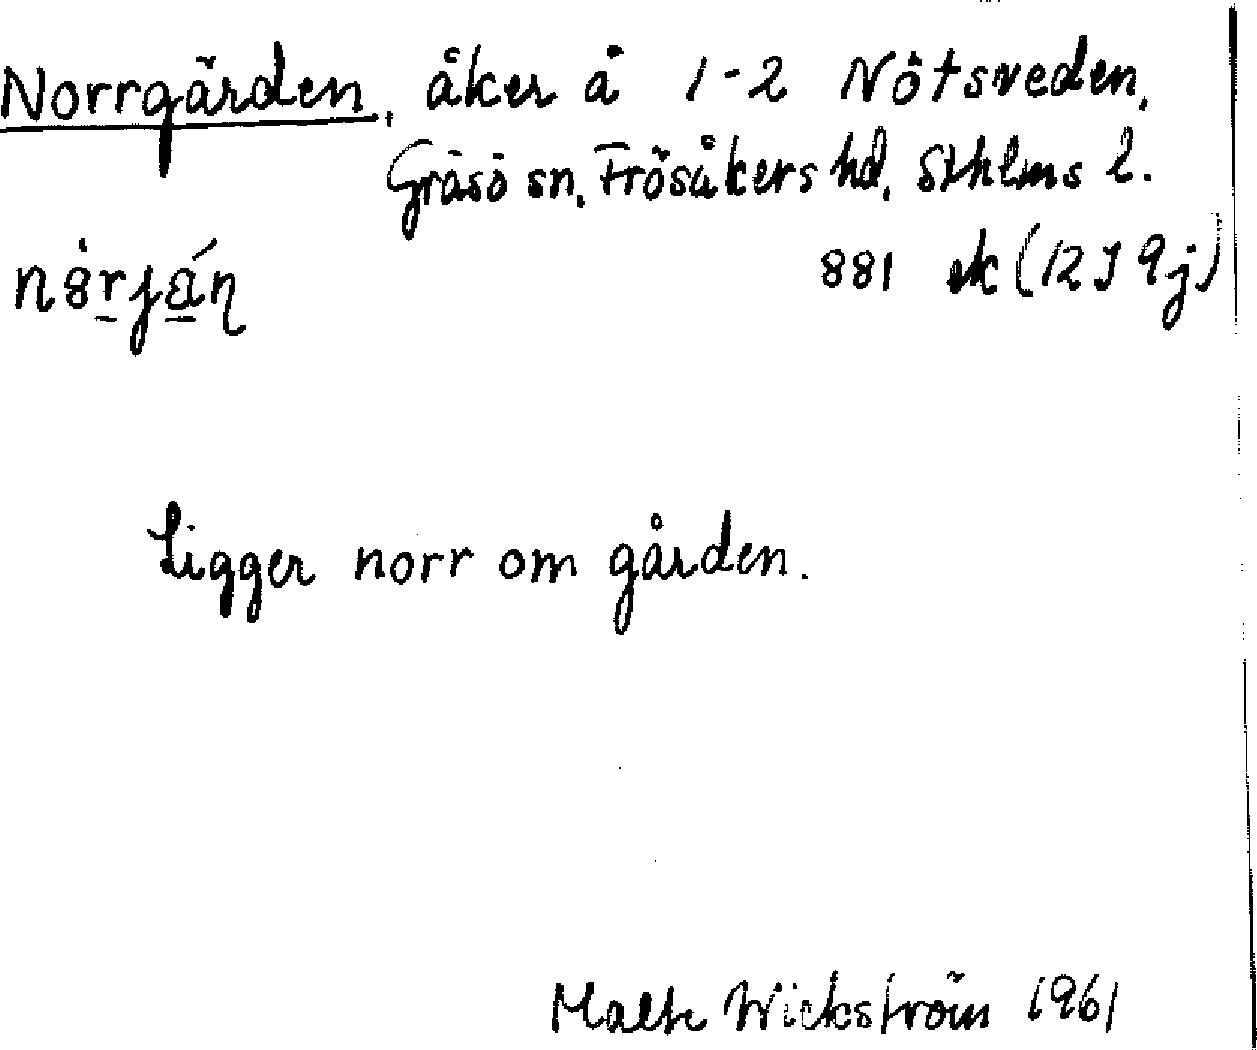 Norrgärden, åker å 1-2 Nötsveden,
Gräsö sn, Frösåkers hd, Sthlms l.
881 ek (12J 9j)
Ligger norr om gården.
Malte Wickström 1961